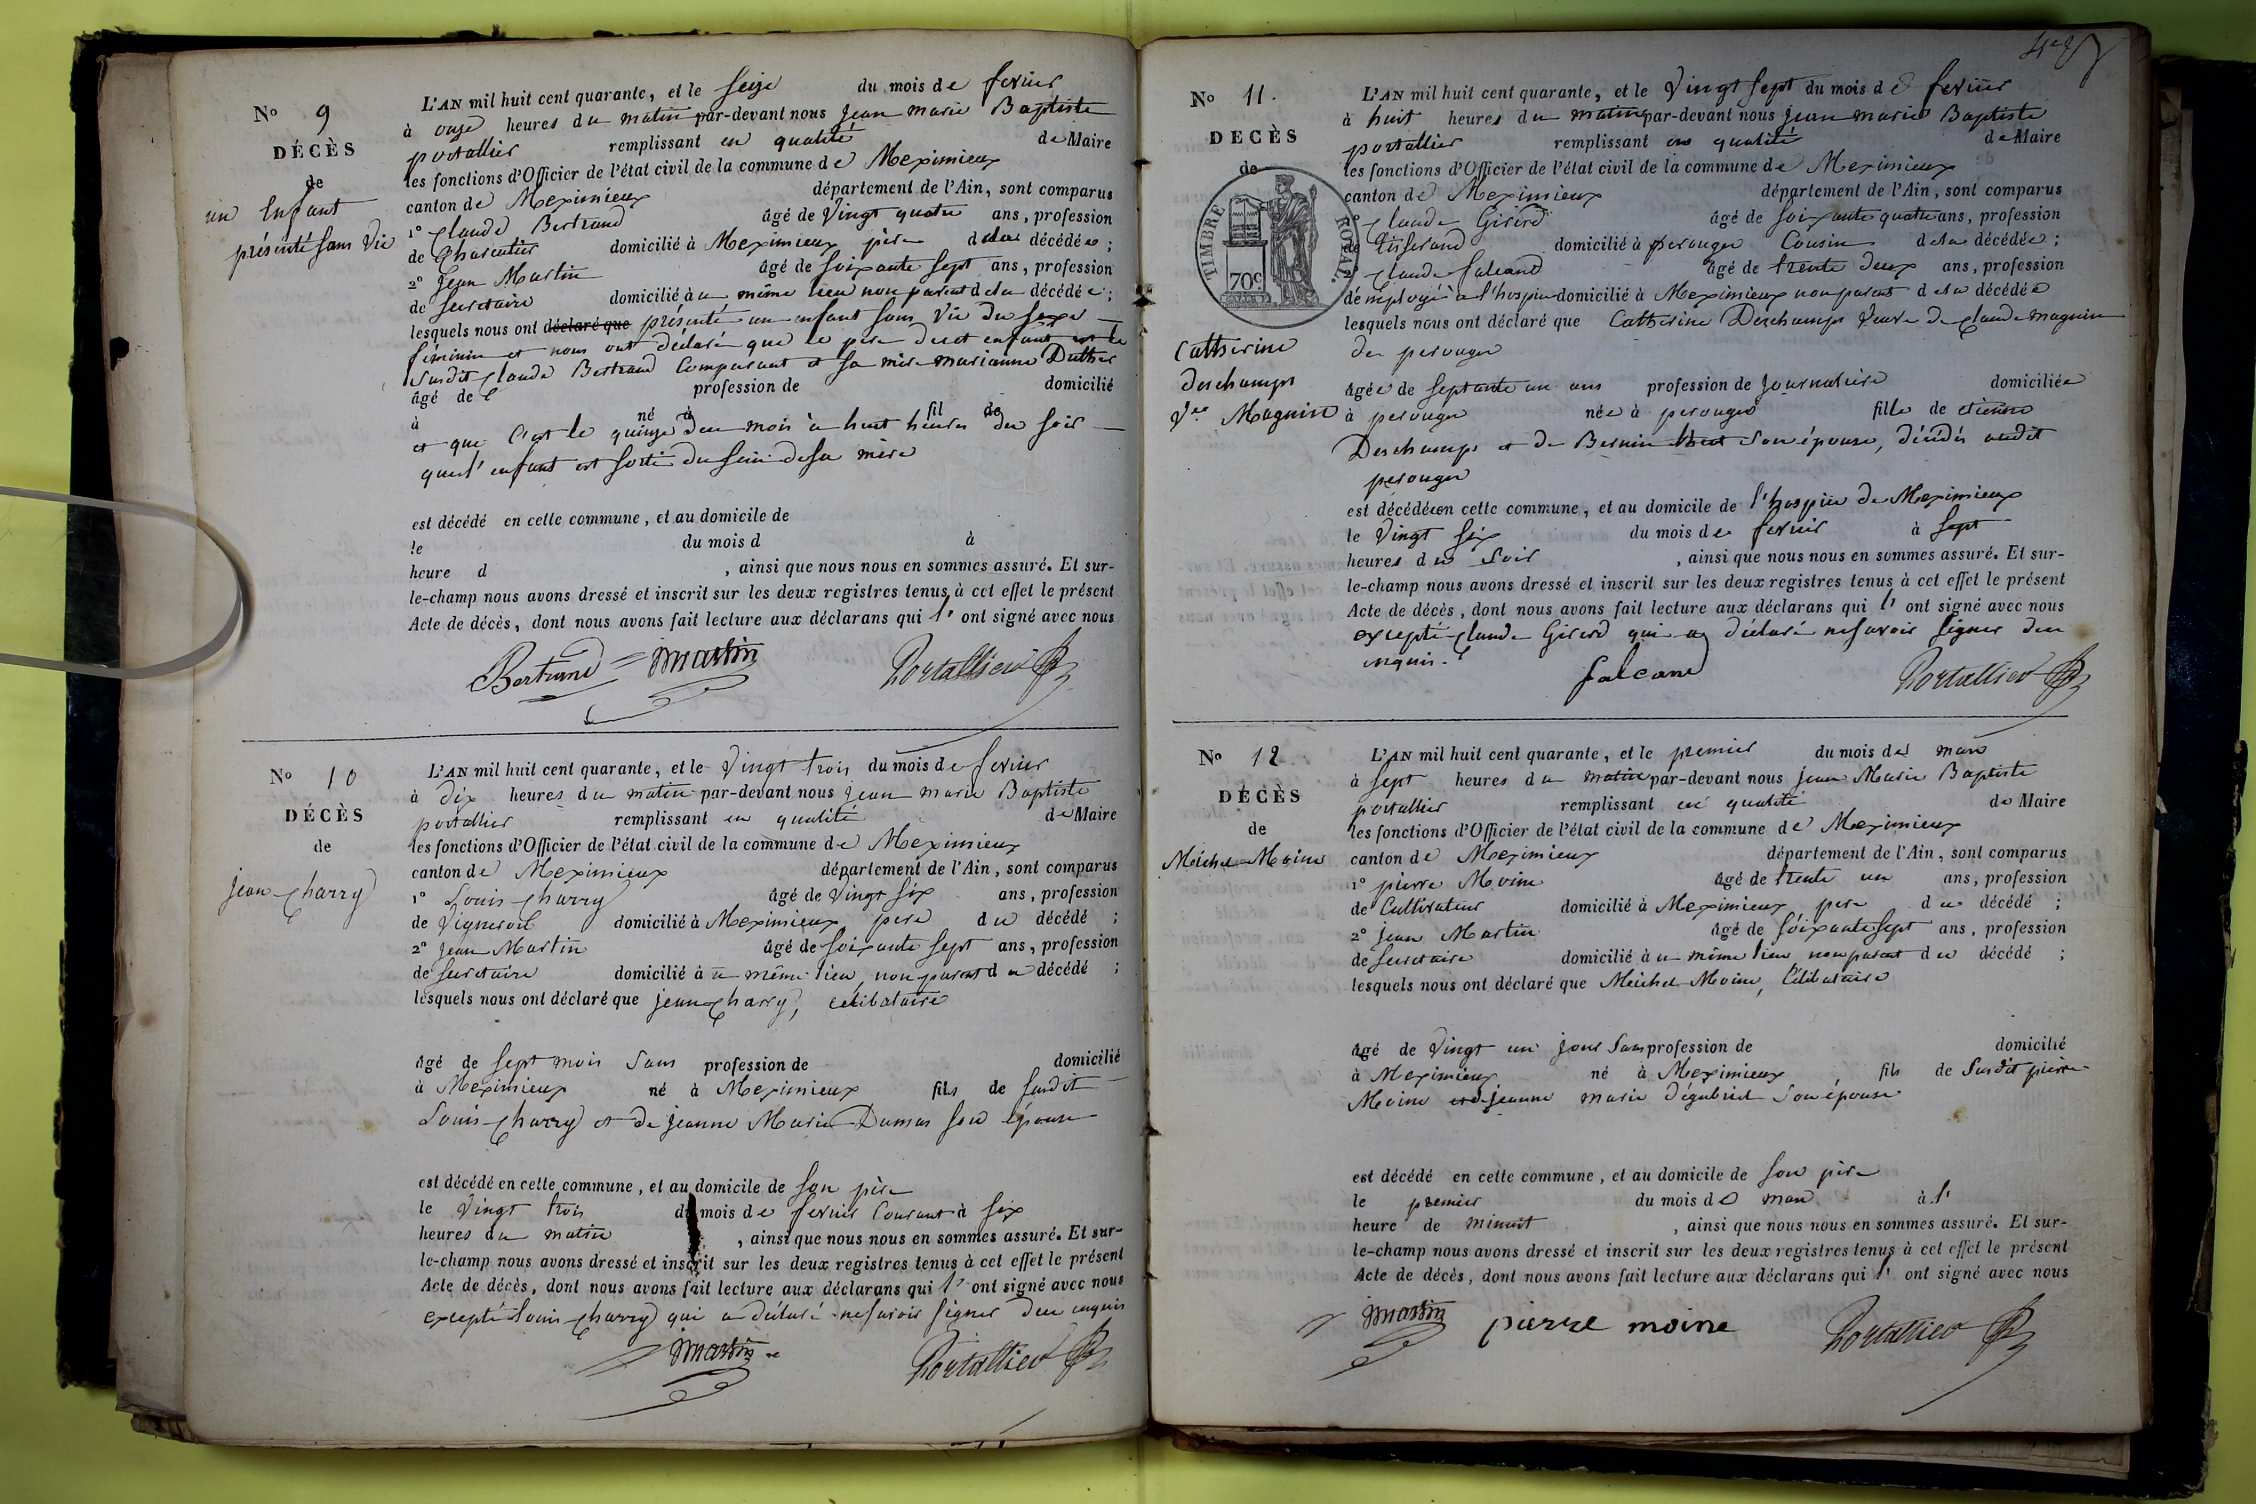 No 9
DÉCÈS
de
un Enfant
présenté sans Vie
L'AN mil huit cent quarante, et le seize du mois de fevrier
à onze heures du matin par-devant nous jean marie Baptiste
portallier remplissant en qualité de Maire
les fonctions d'Officier de l'état civil de la commune de Meximieux
canton de Meximieux département de l'Ain, sont comparus
1° Claude Bertrand âgé de Vingt quatre ans, profession
de Charcutier domicilié à Meximieux père de la décédée ;
2° Jean Martin âgé de soixante sept ans, profession
de secretaire domicilié à u même lieu non parent de la décédée ;
lesquels nous ont déclaré que présenté un enfant sans Vie du sexe
féminin et nous ont déclaré que le père du et enfant est le
susdit Claude Bertrand Comparant et sa mère marianne
âgé de profession de domicilié
à né à fil de
et que C'est le quinze du mois à huit heures du soir
que l'enfant est sorti du sein de sa mère
est décédé en cette commune, et au domicile de
le du mois d à
heure d , ainsi que nous nous en sommes assuré. Et sur-
le-champ nous avons dressé et inscrit sur les deux registres tenus à cet effet le présent
Acte de décès, dont nous avons fait lecture aux déclarans qui l' ont signé avec nous
Bertrand jmartin Portallier
No 10
DÉCÈS
de
jean Charry
L'AN mil huit cent quarante, et le Vingt trois du mois de fevrier
à dix heures du matin par-devant nous jean marie Baptiste
portallier remplissant en qualité de Maire
les fonctions d'Officier de l'état civil de la commune de Meximieux
canton de Meximieux département de l'Ain, sont comparus
1° Louis Charry âgé de Vingt six ans, profession
de Vigneron domicilié à Meximieux père du décédé ;
2° jean Martin âgé de soixante sept ans, profession
de secretaire domicilié à u même lieu, non parent du décédé ;
lesquels nous ont déclaré que jean Charry, célibataire
âgé de sept mois sans profession de domicilié
à Meximieux né à Meximieux fils de susdit
Louis Charry et de jeanne Marie Dumas son épouse
est décédé en cette commune, et au domicile de son père
le Vingt trois du mois de fevrier Courant à six
heures du matin , ainsi que nous nous en sommes assuré. Et sur-
le-champ nous avons dressé et inscrit sur les deux registres tenus à cet effet le présent
Acte de décès, dont nous avons fait lecture aux déclarans qui l' ont signé avec nous
excepté Louis Charry qui a déclaré ne savoir signer de ce enquis
jmartin Portallier
No 11.
DECÈS
de
TIMBRE ROYAL.
70c
Catherine
deschamps
Ve Magnin
L'AN mil huit cent quarante, et le Vingt sept du mois de fevrier
à huit heures du matin par-devant nous jean marie Baptiste
portallier remplissant en qualité de Maire
les fonctions d'Officier de l'état civil de la commune de Meximieux
canton de Meximieux département de l'Ain, sont comparus
1° Claude Girerd âgé de soixante quatre ans, profession
de tisserand domicilié à perouges Cousin de la décédée ;
2° Claude falcand âgé de trente deux ans, profession
d'employé à l'hospice domicilié à Meximieux non parent de la décédée
lesquels nous ont déclaré que Catherine Deschamps Veuve de Claude magnin
de perouges
âgée de septante un ans profession de journalière domiciliée
à perouges née à perouges fille de etienne
Deschamps et de son épouse, décédés audit
perouges
est décédée en cette commune, et au domicile de l'hospice de Meximieux
le Vingt six du mois de fevrier à sept
heures du soir , ainsi que nous nous en sommes assuré. Et sur-
le-champ nous avons dressé et inscrit sur les deux registres tenus à cet effet le présent
Acte de décès, dont nous avons fait lecture aux déclarans qui l' ont signé avec nous
excepté Claude Girerd qui a déclaré ne savoir signer de ce
enquis.
falcand Portallier
No 12
DÉCÈS
de
Michel Moine
L'AN mil huit cent quarante, et le premier du mois de mars
à sept heures du matin par-devant nous jean Marie Baptiste
portallier remplissant en qualité de Maire
les fonctions d'Officier de l'état civil de la commune de Meximieux
canton de Meximieux département de l'Ain, sont comparus
1° pierre Moine âgé de trente un ans, profession
de Cultivateur domicilié à Meximieux père du décédé ;
2° jean Martin âgé de soixante sept ans, profession
de secretaire domicilié à u même lieu non parent du décédé ;
lesquels nous ont déclaré que Michel Moine, Célibataire
âgé de Vingt un jour sans profession de domicilié
à Meximieux né à Meximieux fils de susdit pierre
Moine et de jeanne marie son épouse
est décédé en cette commune, et au domicile de son père
le premier du mois de mars à l'
heure de minuit , ainsi que nous nous en sommes assuré. Et sur-
le-champ nous avons dressé et inscrit sur les deux registres tenus à cet effet le présent
Acte de décès, dont nous avons fait lecture aux déclarans qui l' ont signé avec nous
jmartin pierre moine Portallier